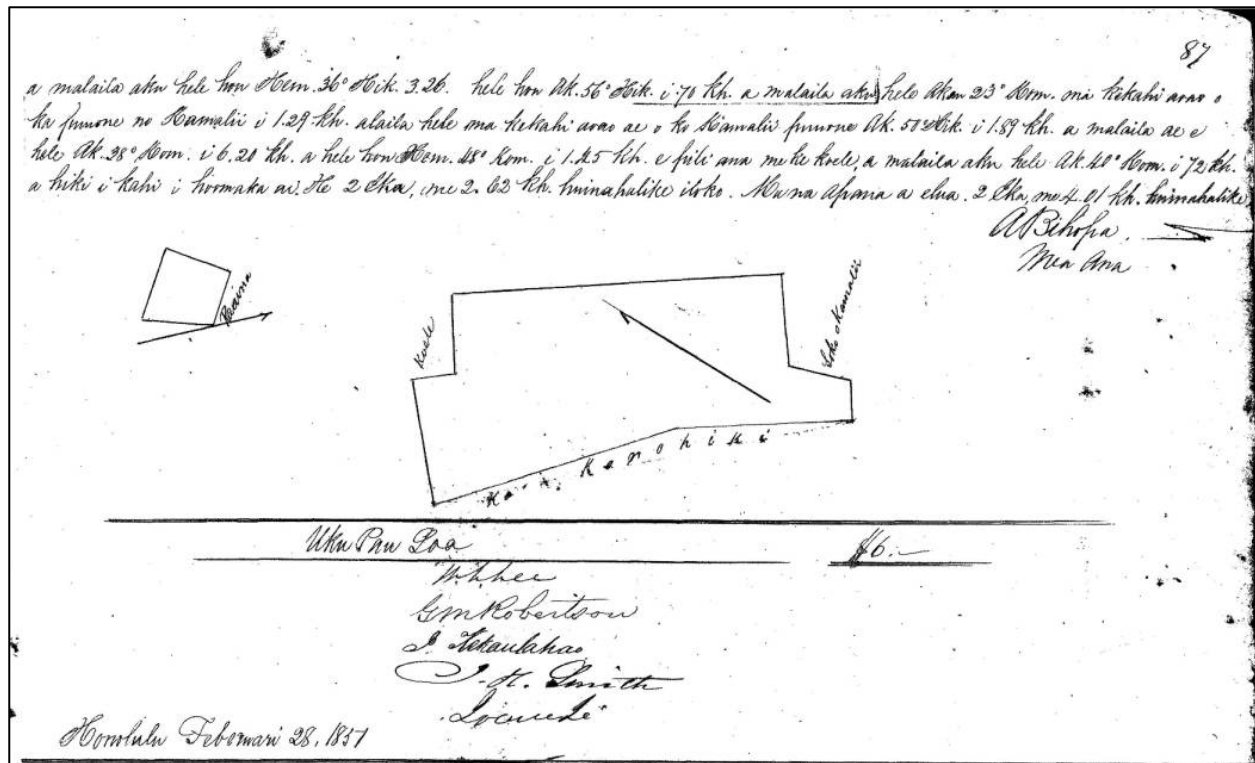 87
a malaila aku hele hou Hem. 36° Hik. 3.26. hele hou Ak. 56° Hik. i .70 kh. a malaila aku hele Akau 23° Kom. ma kekahi aoao o
ka puuone no Kamalii i 1.29 kh. alaila hele ma kekahi aoao ae o ko Kamalii puuone Ak. 50° Hik. i 1.89 kh. a malaila ae e
hele Ak. 38° Kom. i 6.20 kh. a hele hou Hem. 48° Kom. i 1.45 kh. e pili ana me ke koele, a malaila aku hele Ak. 40° Kom. i 72 kh.
a hiki i kahi i hoomaka ai. He 2 Eka, me 2.62 kh. huinahalike iloko. Ma na Apana a elua. 2 Eka, me 4.01 kh. huinahalike
A Bihopa.
Mea Ana
Koele
Loko Kamalii
Ko Konohiki
Uku Pau Loa
$6.—
W. L. Lee
G M Robertson
J. Kekaulahao
J. H. Smith
Honolulu Feberuari 28, 1851